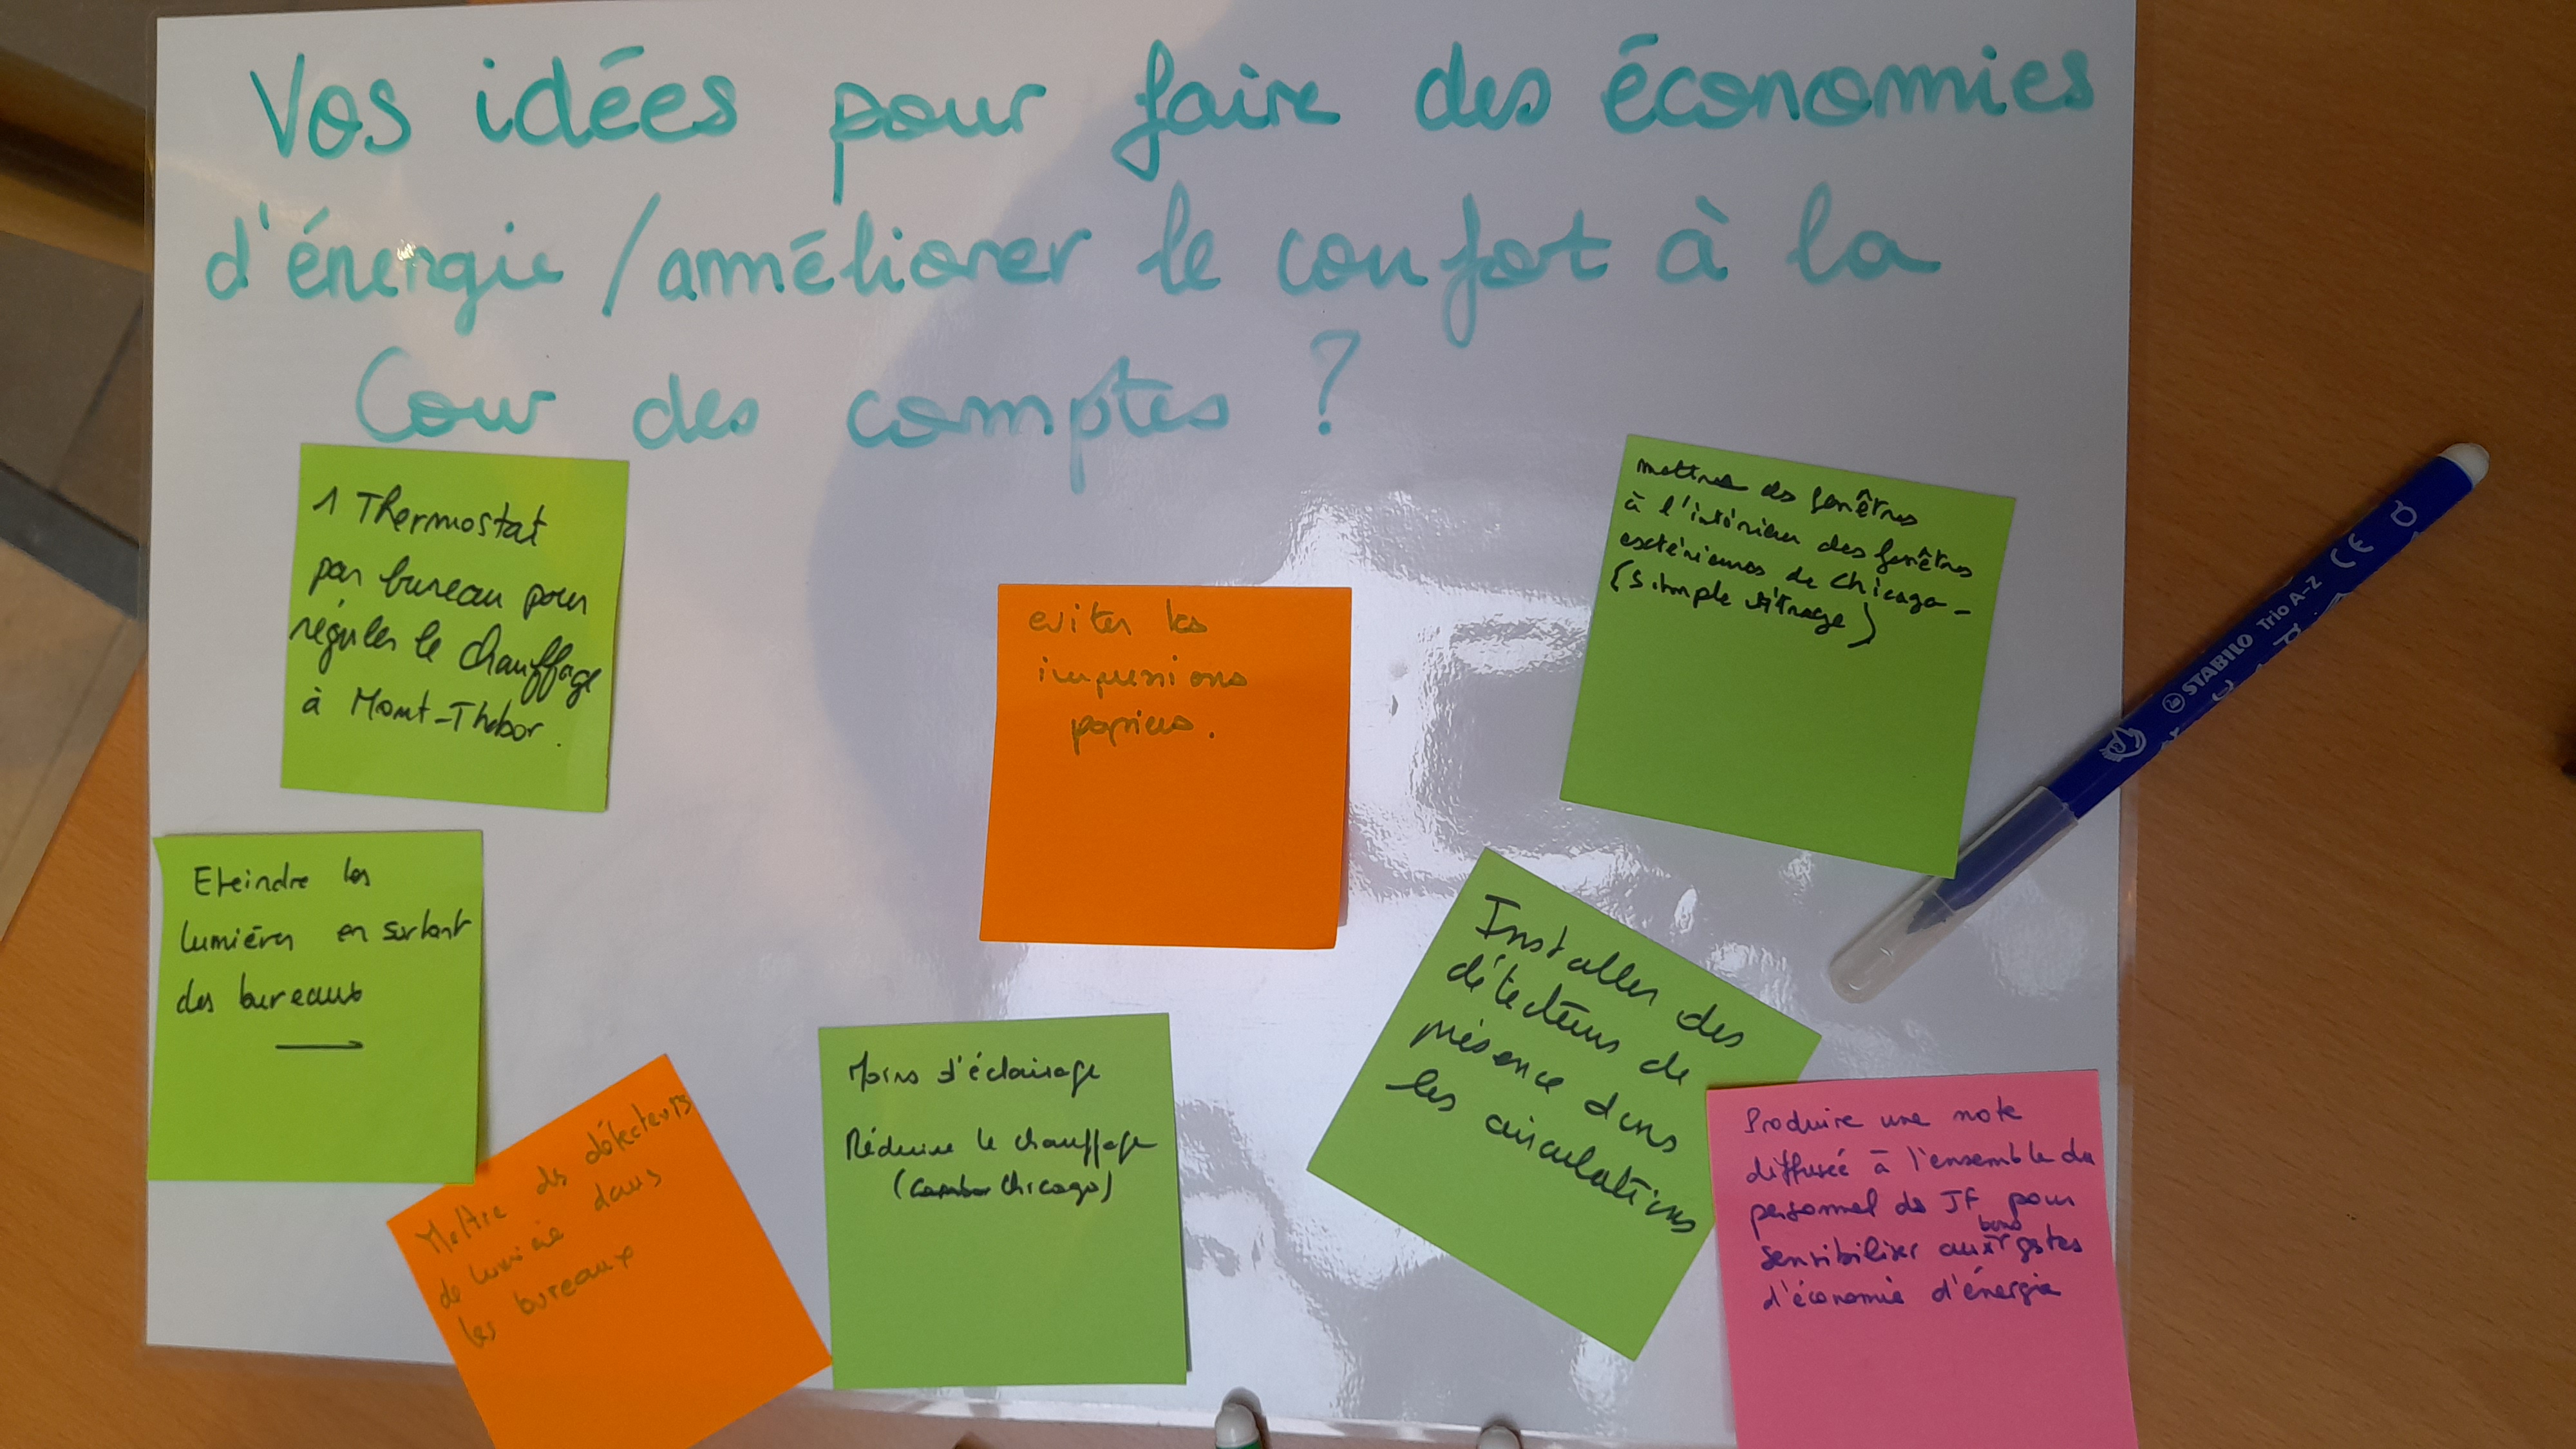 Vos idées pour faire des économies
d'énergie / améliorer le confort à la
Cour des comptes ?
1 Thermostat
par bureau pour
réguler le chauffage
à Mont-Thabor.
mettre des fenêtres
à l'intérieur des fenêtres
extérieures de Chicago -
(simple vitrage)
eviter les
impressions
papiers.
Eteindre les
lumières en sortant
des bureaux
Installer des
détecteurs de
présence dans
les circulations
Moins d'éclairage
Réduire le chauffage
(Cambon Chicago)
Mettre des détecteurs
de lumière dans
les bureaux
Produire une note
diffusée à l'ensemble du
personnel des JF pour
sensibiliser aux bons gestes
d'économie d'énergie
STABILO Trio A-Z CE